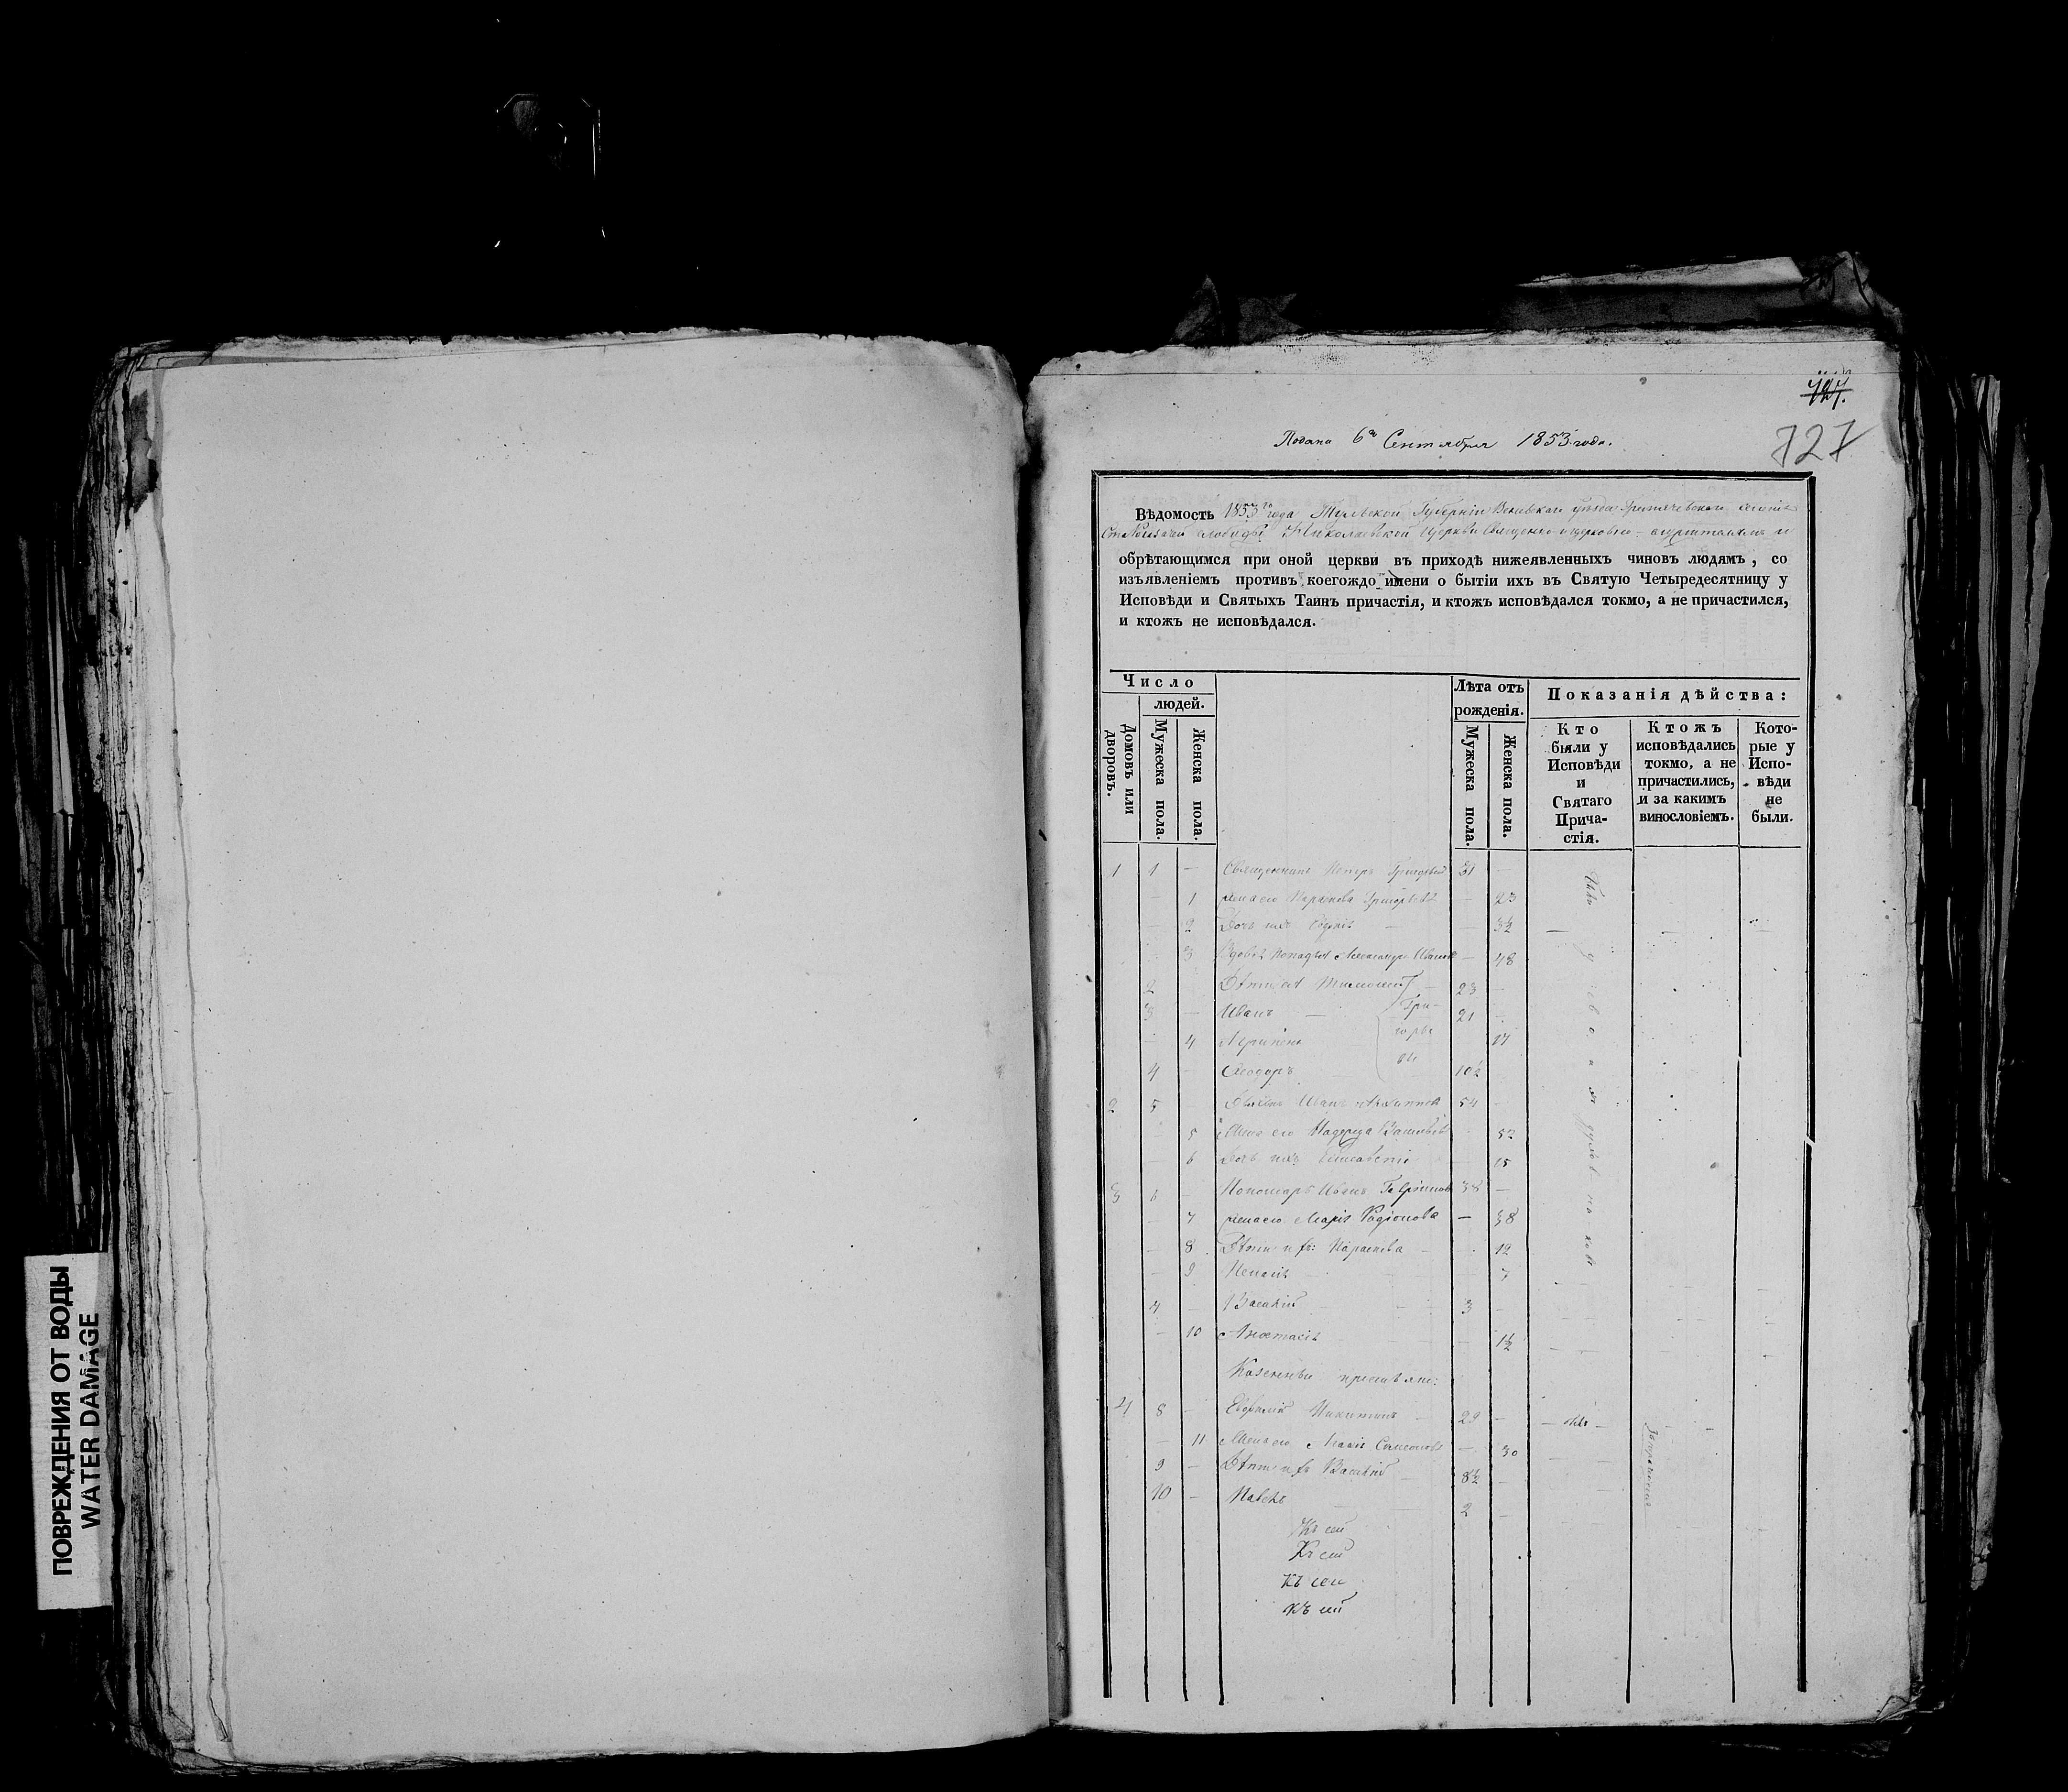 ПОВРЕЖДЕНИЯ ОТ ВОДЫ
WATER DAMAGE
727
Подана 6го Сентября 1853 года.
Вѣдомость 1853го года Тульской Губерніи Веневскаго уѣзда
слободы Николаевской Церкви Священно и церковно-служителямъ и
обрѣтающимся при оной церкви въ приходѣ нижеявленныхъ чиновъ людямъ, со
изъявленіемъ противъ коегождо имени о бытіи ихъ въ Святую Четыредесятницу у
Исповѣди и Святыхъ Таинъ причастія, и ктожъ исповѣдался токмо, а не причастился,
и ктожъ не исповѣдался.
Число
людей.
Домовъ или дворовъ.
Мужеска пола.
Женска пола.
Лѣта отъ рожденія.
Мужеска пола.
Женска пола.
Показанія дѣйства:
Кто были у Исповѣди и Святаго Причастія.
Ктожъ исповѣдались токмо, а не причастились, и за какимъ винословіемъ.
Которые у Исповѣди не были.
1 1 — Священникъ Петръ 31 —
— 1 жена его Параскева Григорьева — 23
— 2 Дочь ихъ — 3½
3 Вдова попадья Александра — 48
2 Дѣти ея Тимоѳей 23 —
3 — Иванъ — 21 —
Григорьевы
4 Агрипена 17
4 Ѳеодоръ 10½
2 5 Иванъ 54 —
5 Жена его Надежда Васильева 52
6 Дочь ихъ Елисавета 15
3 6 — Пономарь Иванъ Гавріиловъ 38 —
— 7 жена его Марія Родіонова — 38
8 Дѣти ихъ: Параскева 12
9 7
7 — Василій 3 —
— 10 Анастасія 1½
Казенные крестьяне:
4 8 — Евфимій Никитинъ 29 —
— 11 Жена его Марія — 30
9 — Дѣти ихъ Василій 8½ —
10 — Павелъ 2 —
Къ сей
Къ сей
Къ сей
Къ сей